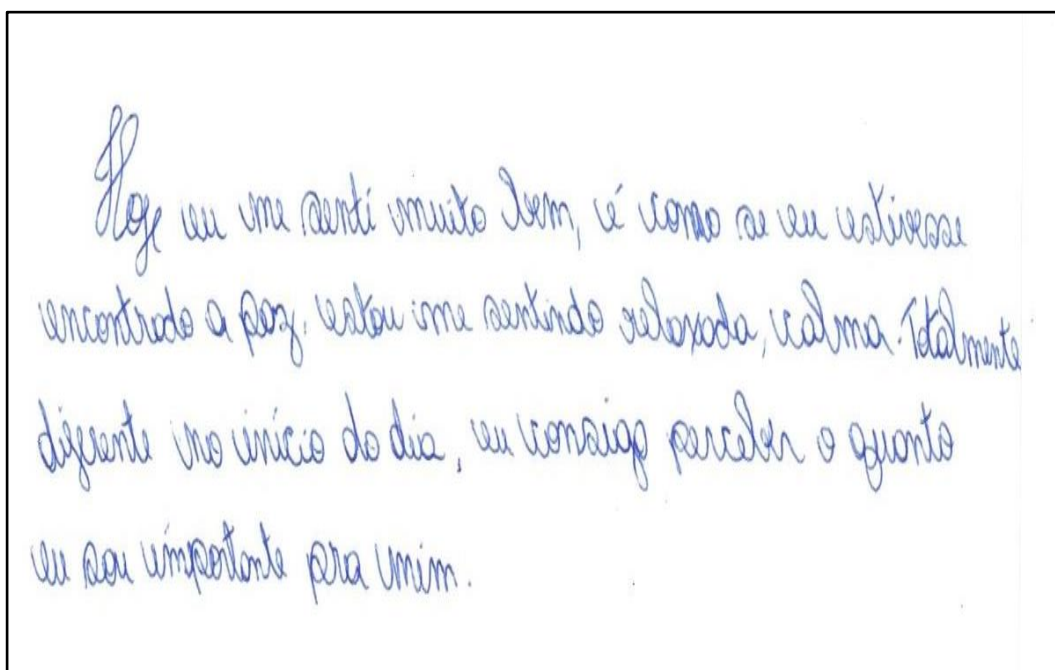 Hoje eu me senti muito bem, é como se eu estivesse
encontrado a paz. estou me sentindo relaxada, calma. Totalmente
diferente no início do dia, eu consigo perceber o quanto
eu sou importante pra mim.